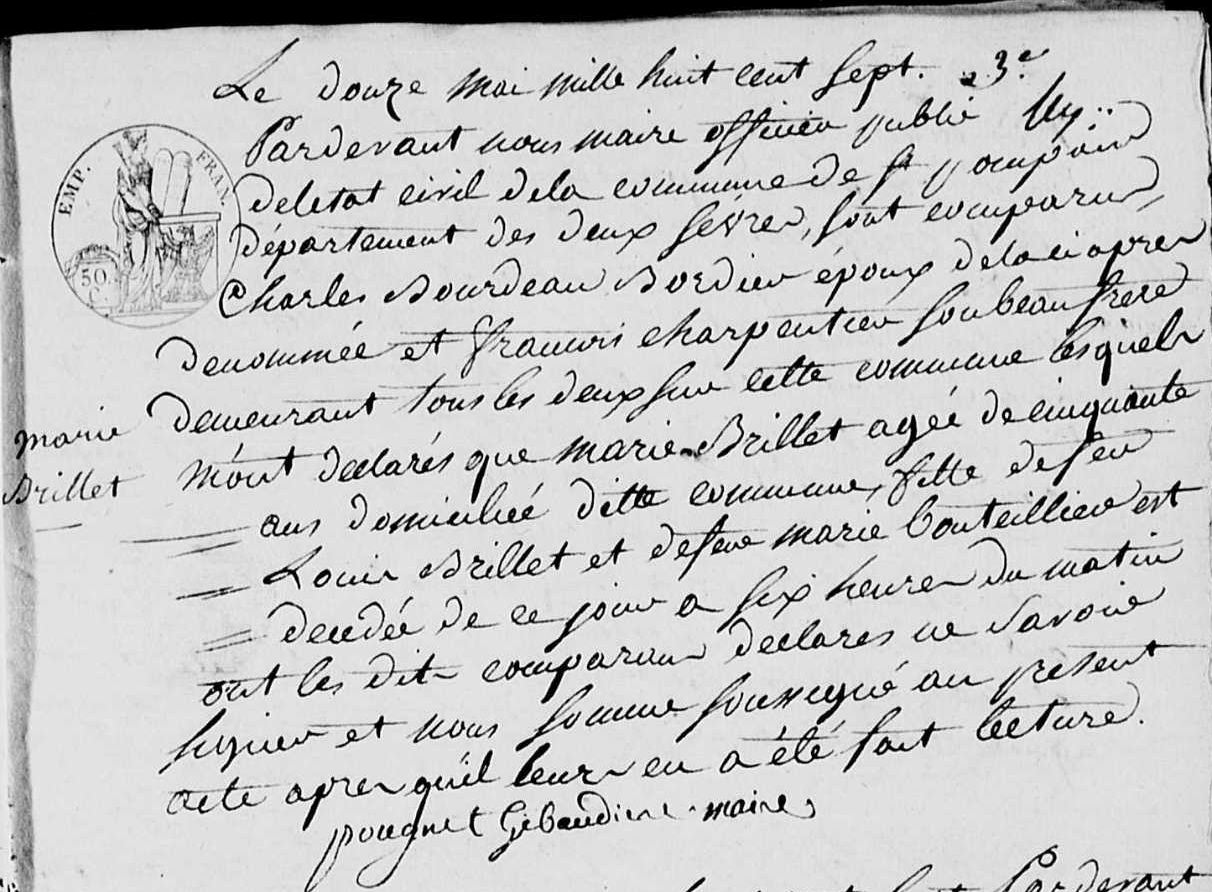 Le douze mai mille huit cent sept. 3e
Pardevant nous maire officier publié
EMP. FRAN.
50
C.
deletat civil dela commune de St pompain
département des deux sévres, sont comparus,
Charles Bourdeau Bordier époux dela ci apres
denommée et francois charpentier son beau frere
demeurant tous les deux sur cette commune lesquels
marie
Brillet
m'ont declarés que marie Brillet agée de cinquante
ans domiciliée ditte commune, fille de feu
Louis Brillet et de feue marie bouteillier est
decedée de ce jour a six heures du matin
ont les dits comparans declares ne savoir
signer et nous somme soussigné au présent
acte apres qu'il leurs en a été fait lecture.
pougnet Gibaudiere maire
Pardevant